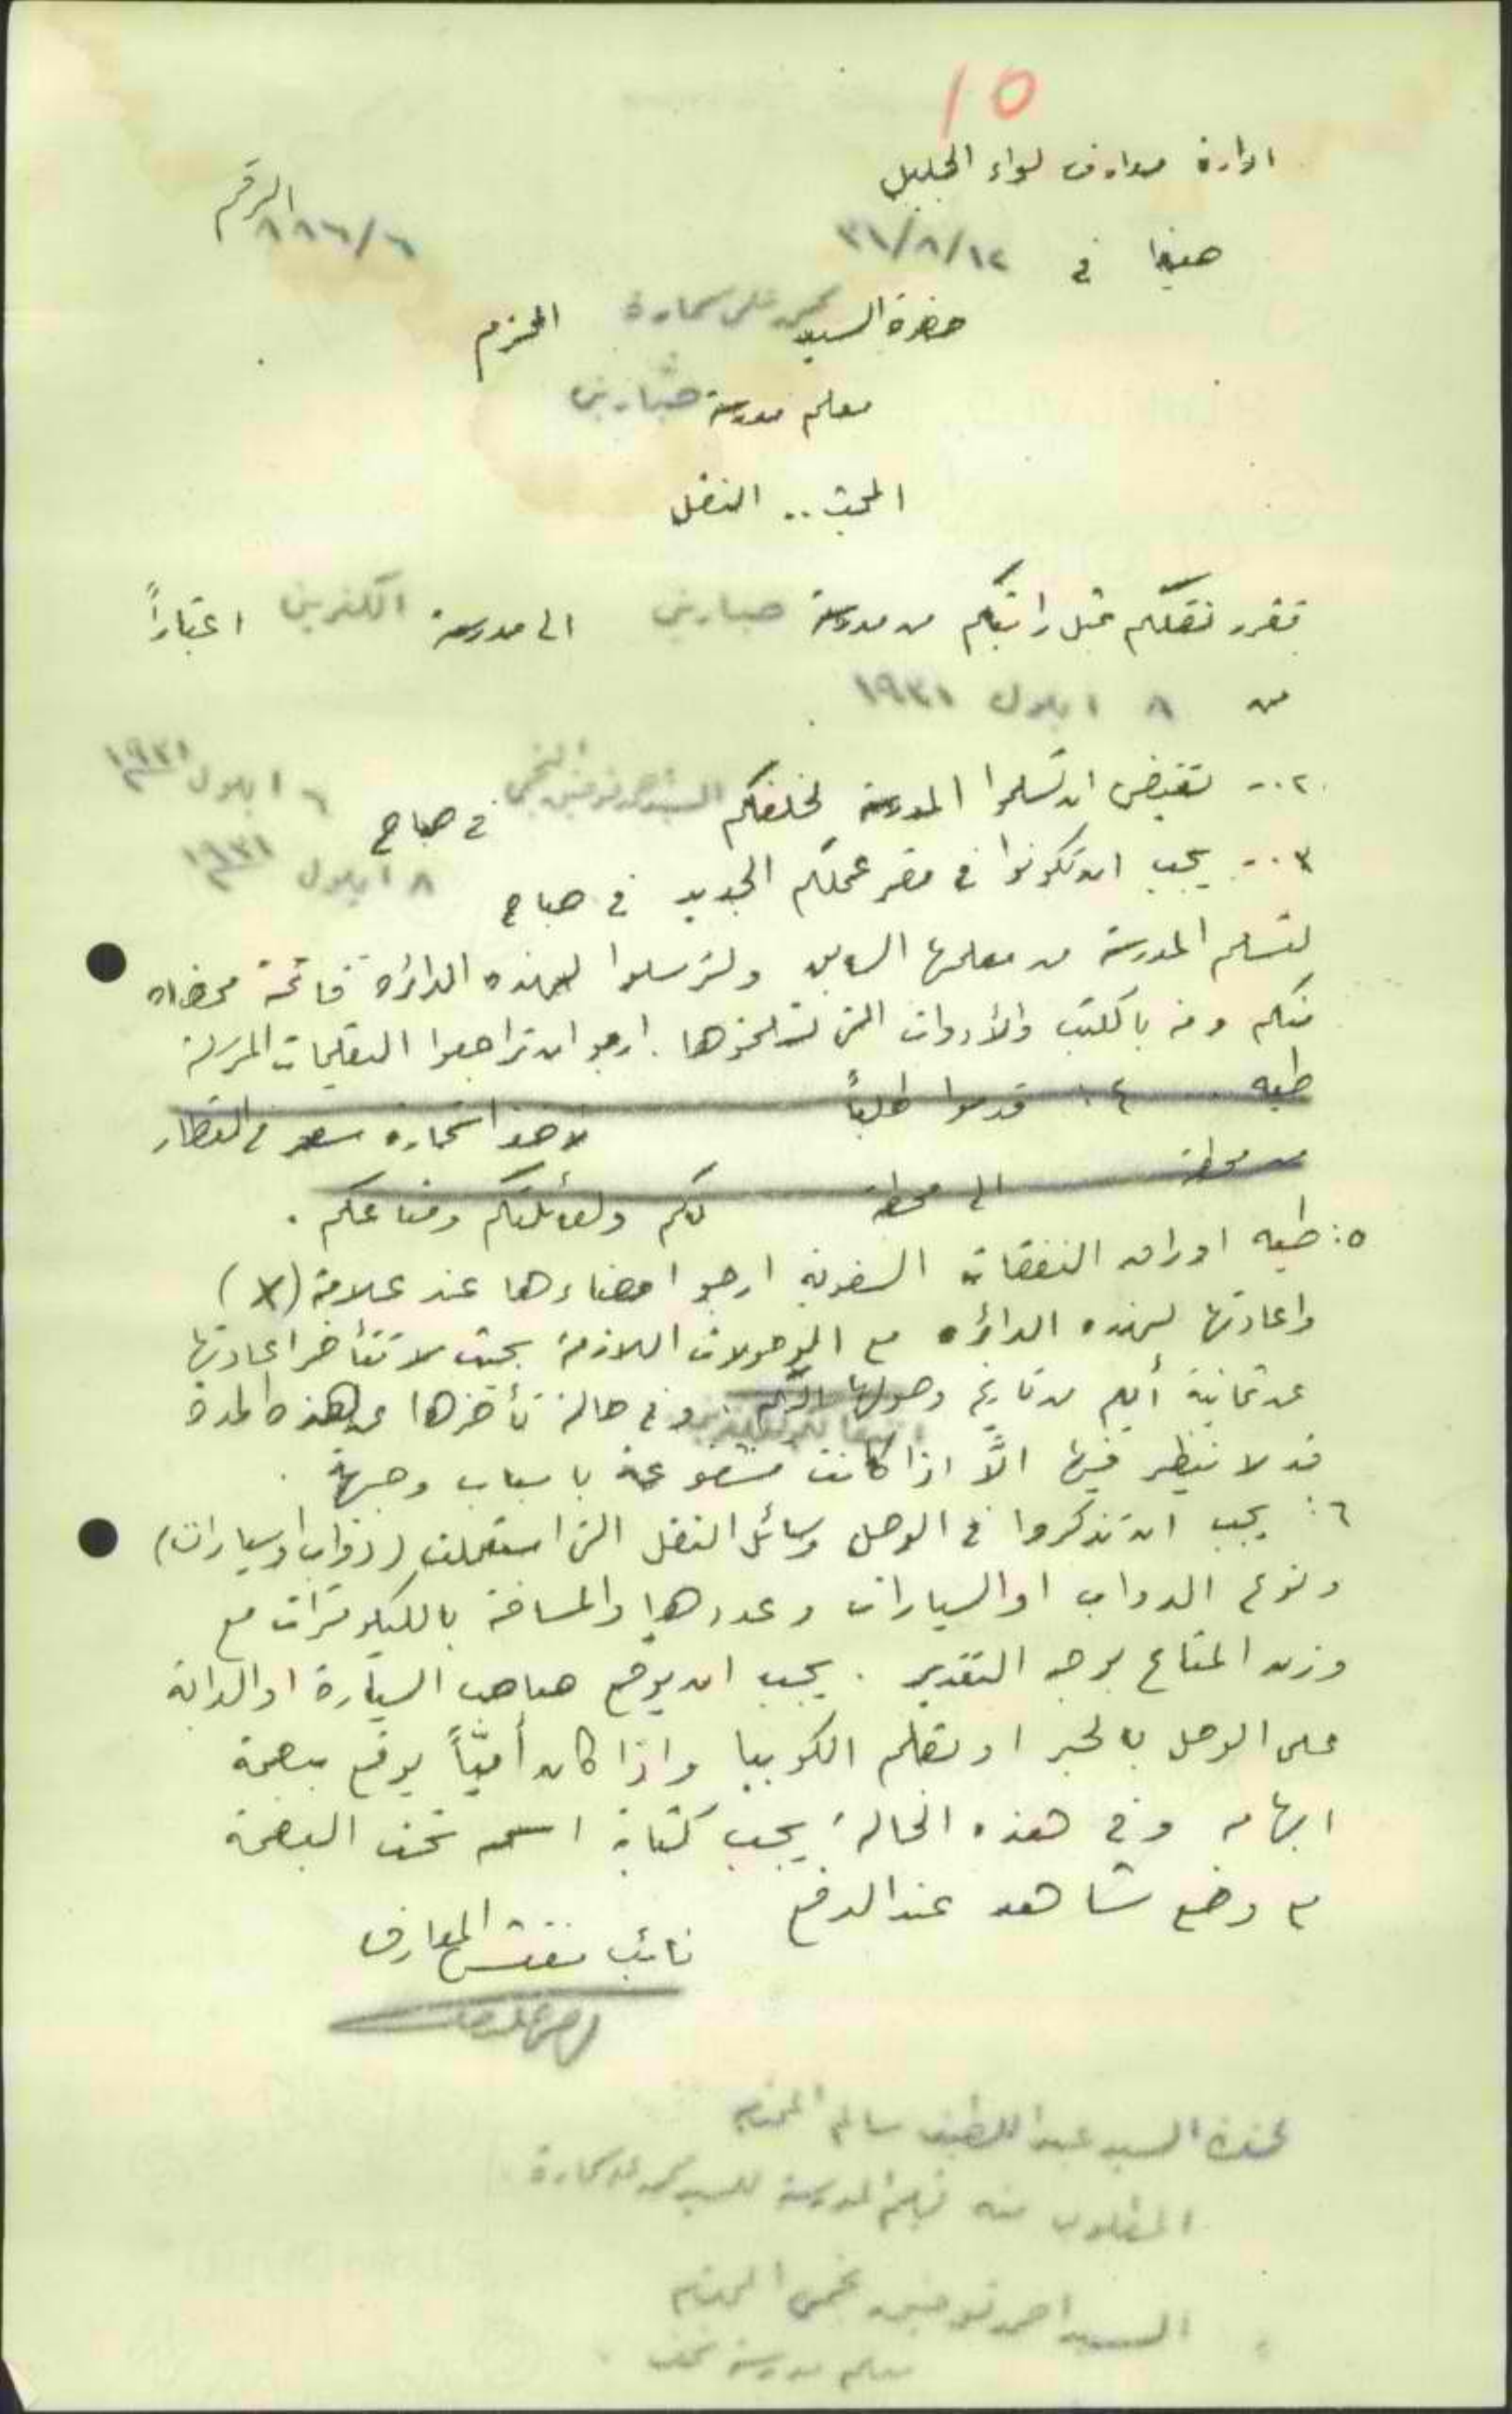 10
ادارة معارف لواء الجليل
الرقم ٨٨٦/٦
حيفا في ٣١/٨/١٢
حضرة السيد محمد علي سحارة المحترم
معلم مدرسة صبارين
المبحث .. النقل
تقرر نقلكم بمثل راتبكم من مدرسة صبارين الى مدرسة الكفرين اعتباراً
من ٨ ايلول ١٩٣١
٢ .- تقتضي ان تسلموا المدرسة لخلفكم السيد احمد توفيق النجمي في صباح ٦ ايلول ١٩٣١
٣ .- يجب ان تكونوا في مقر عملكم الجديد في صباح ٨ ايلول ١٩٣١
لتسلم المدرسة من معلمها السابق ولترسلوا لهذه الدائرة قائمة ممضاه
منكم ومنه بالكتب والأدوات التي تستلموها . ارجو ان تراجعوا التعليمات المرسلة
طيه ٤ : قدموا طلباً لاخذ استمارة سفر في القطار
من محطة الى محطة لكم ولعائلتكم ومتاعكم .
٥ : طيه اوراق النفقات السفرية ارجو امضاءها عند علامة (X)
واعادتها لهذه الدائرة مع الوصولات اللازمة بحيث لا تتأخر اعادتها
عن ثمانية أيام من تاريخ وصولها اليكم . وفي حالة تأخرها عن هذه المدة
قد لا ينظر فيها الاَّ اذا كانت مشفوعة باسباب وجيهة .
٦ : يجب ان تذكروا في الوصل وسائل النقل التي استعملت (دواب او سيارات)
ونوع الدواب او السيارات وعددها والمسافة بالكيلومترات مع
وزن المتاع بوجه التقدير . يجب ان يوقع صاحب السيارة او الدابة
على الوصل بالحبر او بقلم الكوبيا واذا كان أميّاً يوقع ببصمة
ابهامه وفي هذه الحالة يجب كتابة اسمه تحت البصمة
مع وضع شاهد عند الدفع
نائب مفتش المعارف
لحضرة السيد عبد اللطيف سالم المحترم
المطلوب منه تسليم المدرسة للسيد محمد علي سحارة
السيد احمد توفيق نجمي المحترم
معلم مدرسة